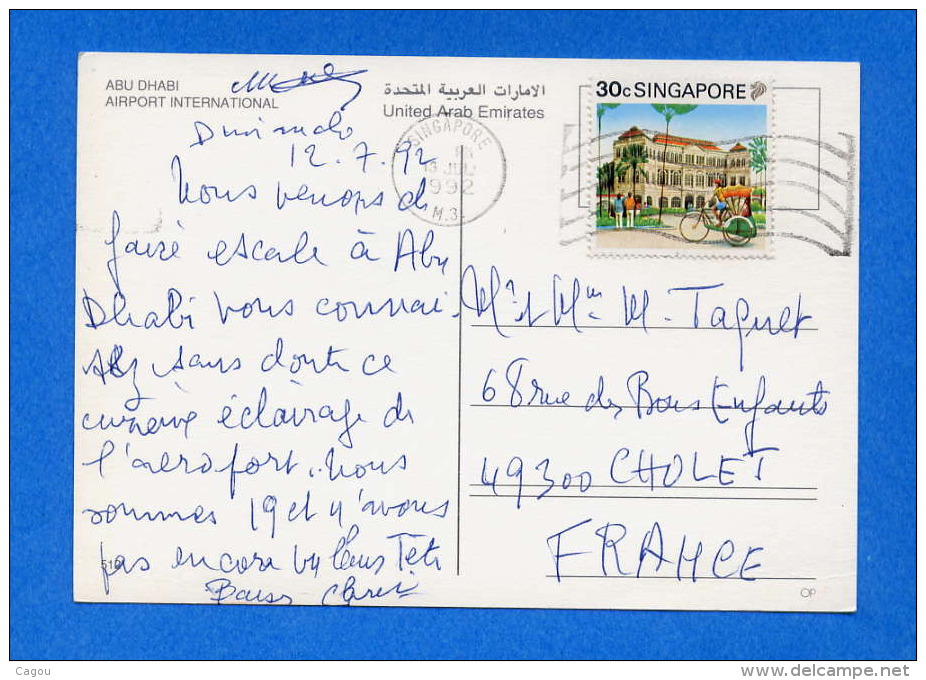 ABU DHABI
AIRPORT INTERNATIONAL
الامارات العربية المتحدة
United Arab Emirates
30c SINGAPORE
SINGAPORE
JUL
1992
M.3.
12.7.92
Nous venons de
faire escale à Abu
Dhabi Vous connai-
ssez sans doute ce
éclairage de
l'aeroport. Nous
sommes 19 et n'avons
pas encore vu leurs Têtes
Mr et Mme M. Taquet
68 rue des Bons Enfants
49300 CHOLET
FRANCE
OP
Cagou
www.delcampe.net